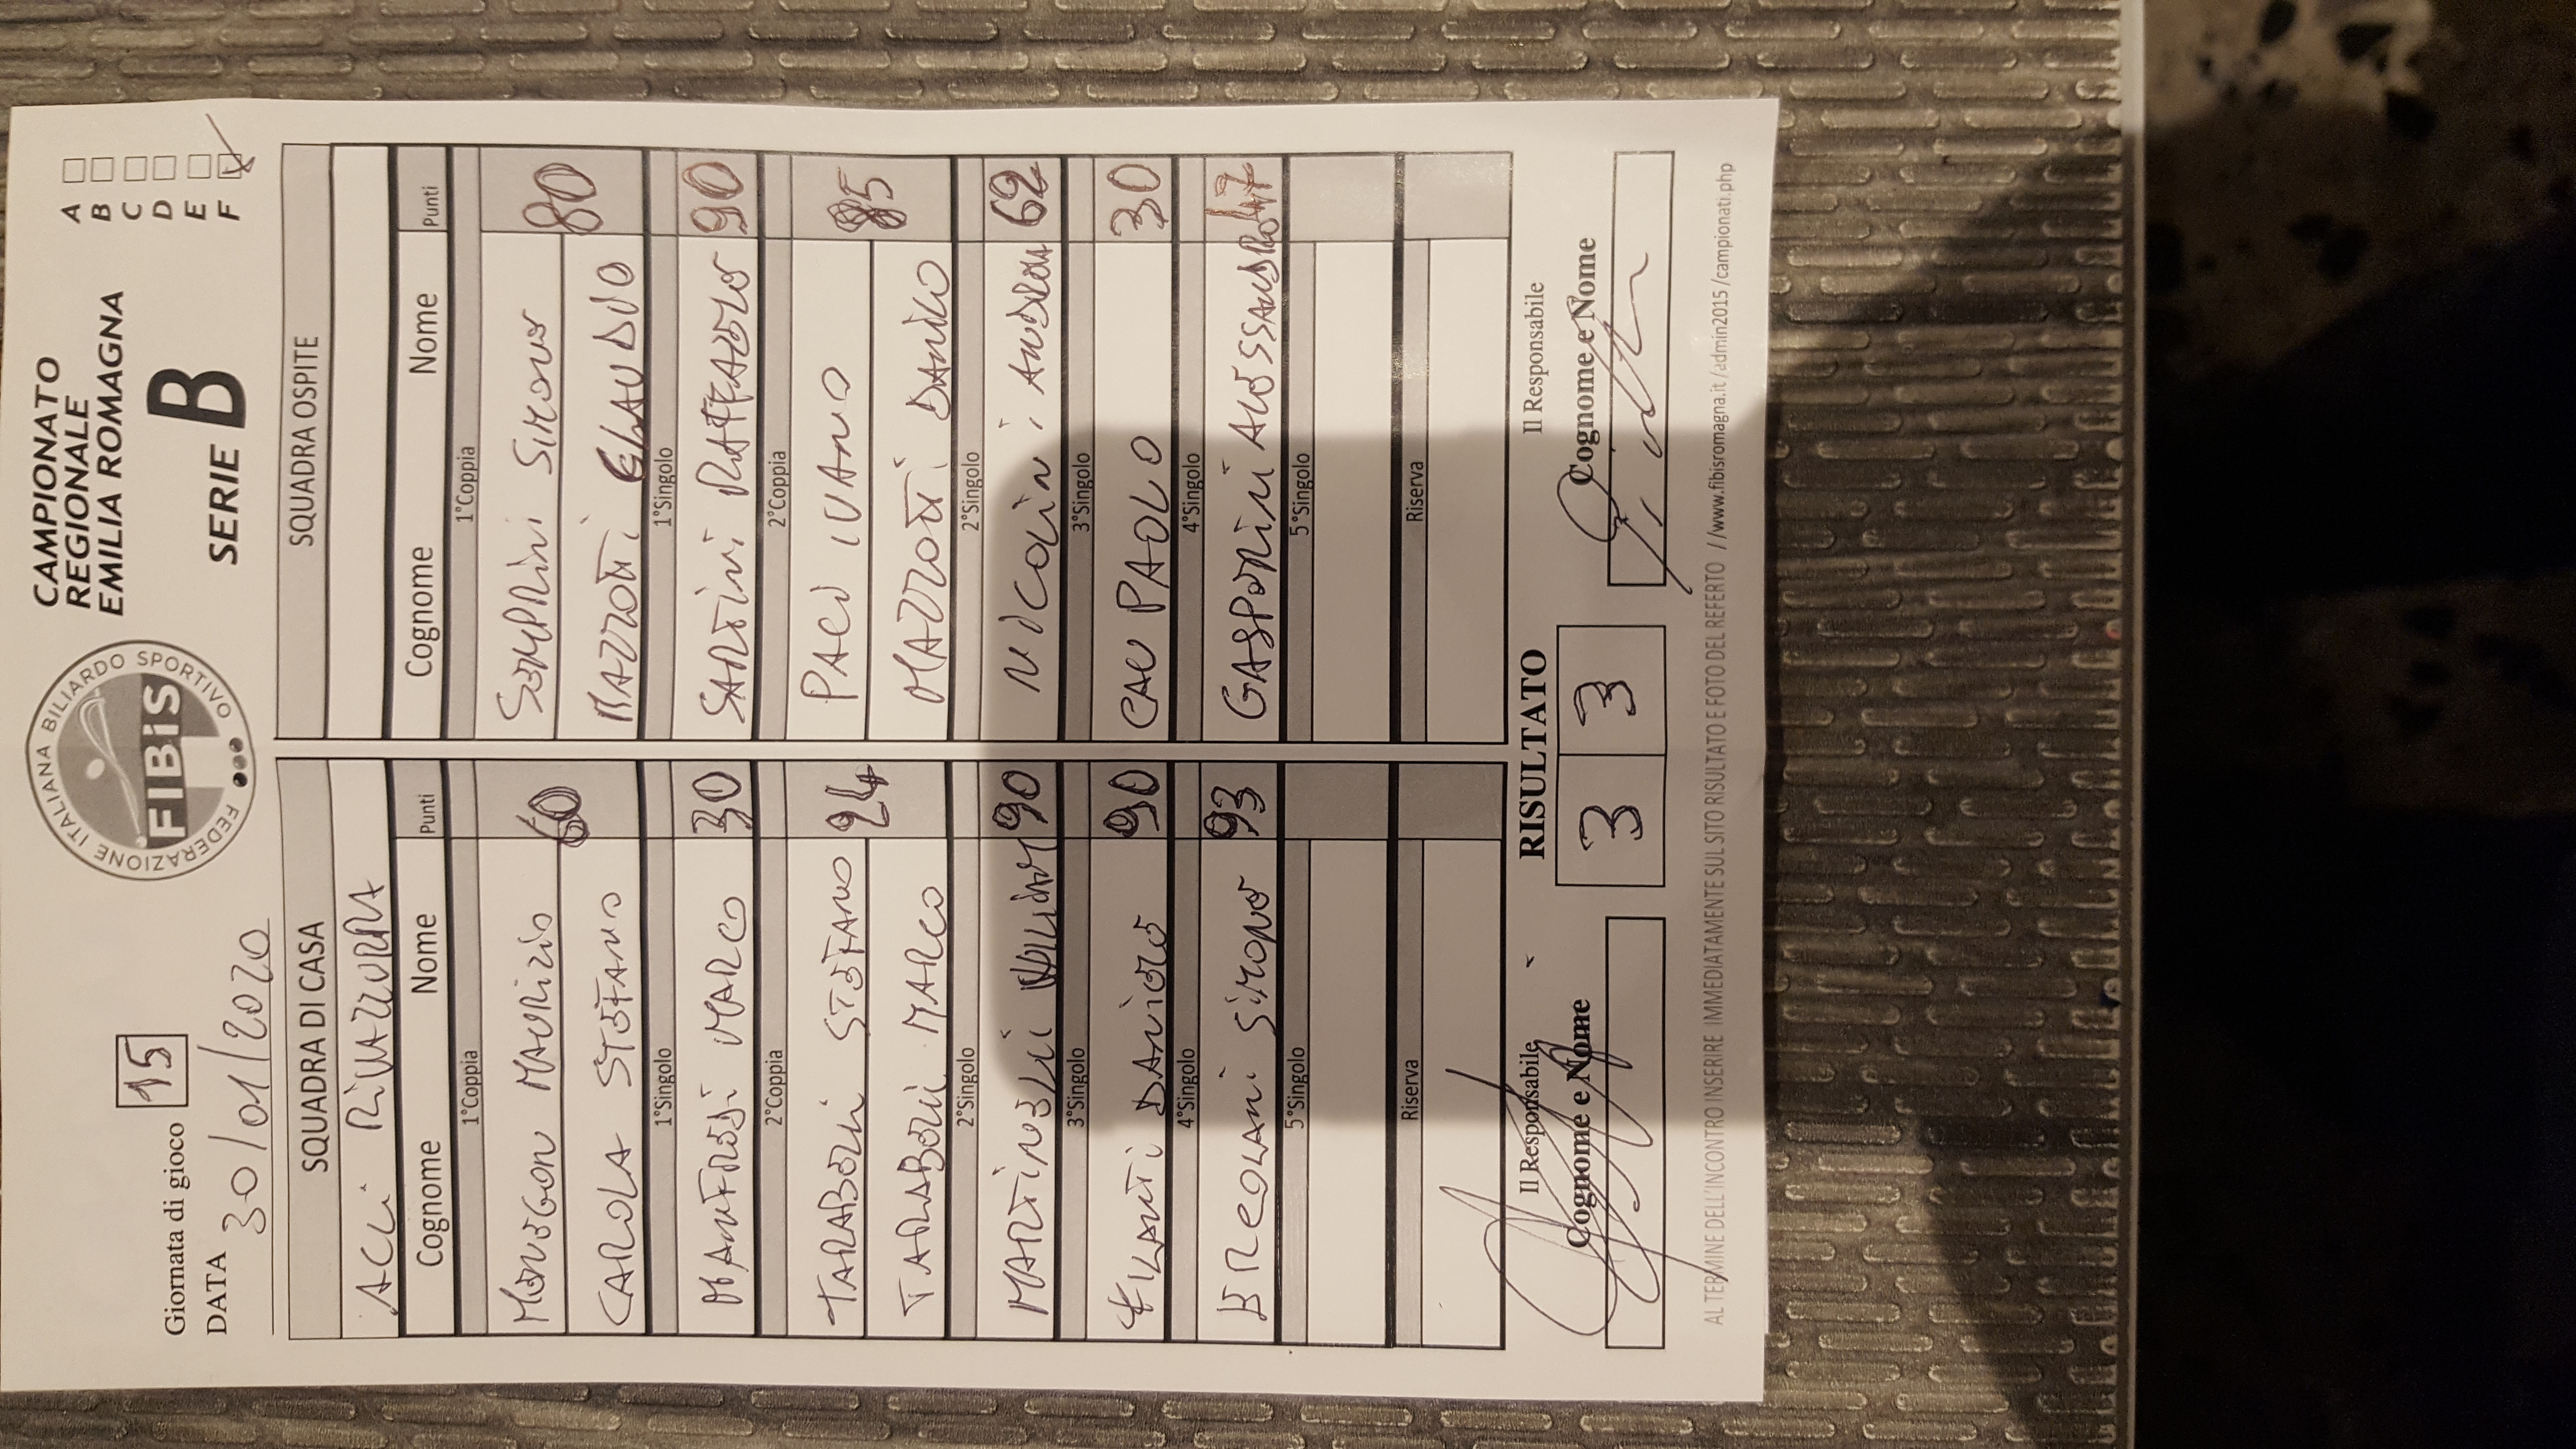 Giornata di gioco 15
DATA 30/01/2020
FEDERAZIONE ITALIANA BILIARDO SPORTIVO
FIBiS
CAMPIONATO
REGIONALE
EMILIA ROMAGNA
SERIE B
A
B
C
D
E
F
SQUADRA DI CASA
ACLI RIVAZZURRA
Cognome Nome Punti
1°Coppia
MENEGON MAURIZIO 60
CAROLA STEFANO
1°Singolo
MANFREDI MARCO 30
2°Coppia
TARABORI STEFANO 24
TARABORI MARCO
2°Singolo
MARTINELLI 90
3°Singolo
FILANTI DANIELE 90
4°Singolo
ERCOLANI SIMONE 93
5°Singolo
Riserva
SQUADRA OSPITE
Cognome Nome Punti
1°Coppia
SEMPRINI SIMONE 80
MAZZOTTI CLAUDIO
1°Singolo
SARTINI RAFFAELE 90
2°Coppia
PACI IVANO 85
MAZZOTTI DANILO
2°Singolo
NICOLINI ANDREA 62
3°Singolo
PAOLO 30
4°Singolo
GASPERINI ALESSANDRO 47
5°Singolo
Riserva
Il Responsabile
Cognome e Nome
RISULTATO
3 3
Il Responsabile
Cognome e Nome
AL TERMINE DELL'INCONTRO INSERIRE IMMEDIATAMENTE SUL SITO RISULTATO E FOTO DEL REFERTO //www.fibisromagna.it/admin2015/campionati.php